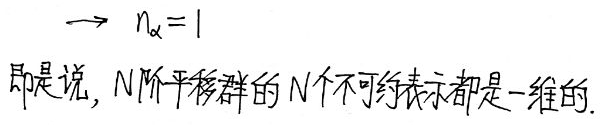 → nα=1
即是说, N阶平移群的N个不可约表示都是一维的.